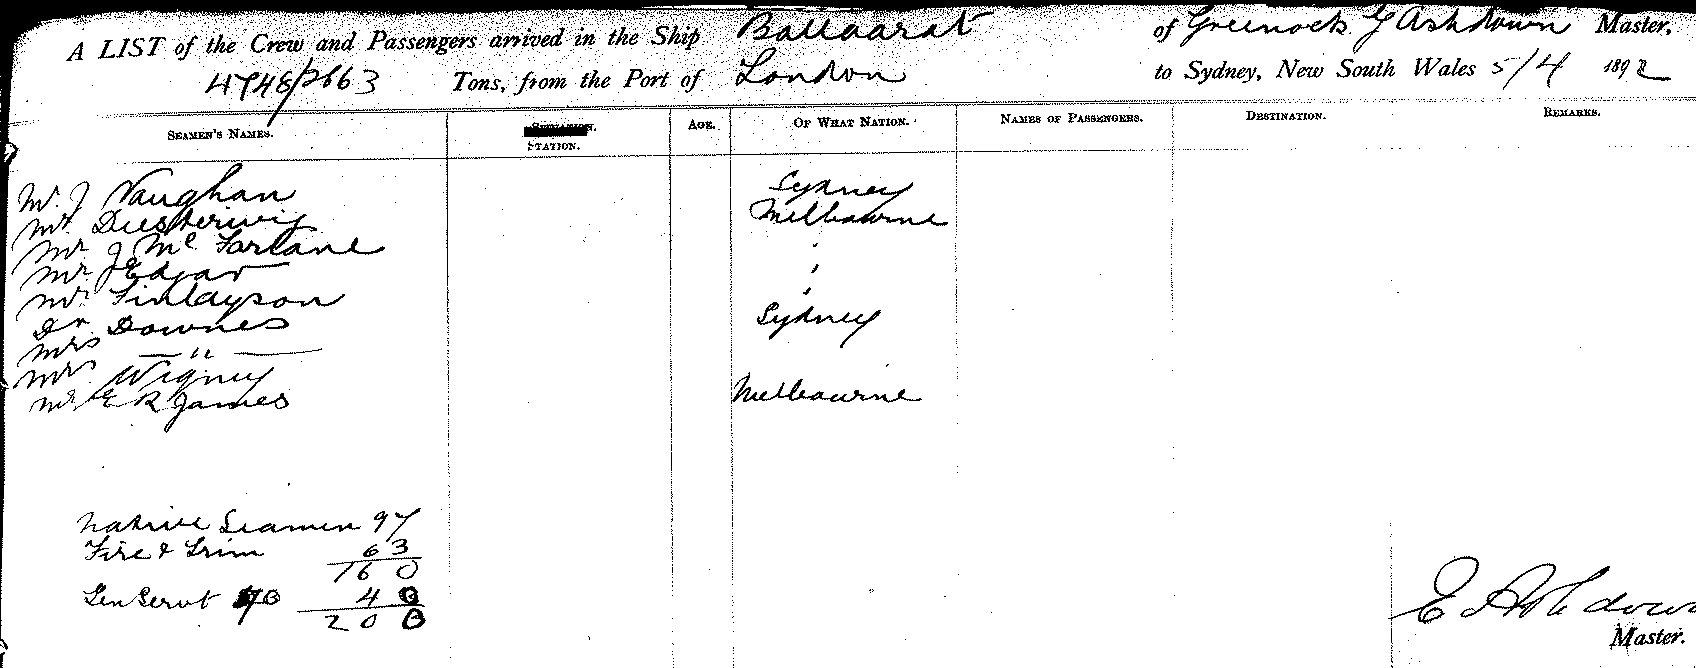 A LIST of the Crew and Passengers arrived in the Ship Ballaarat of Greenock G Ashdown Master,
4748/2663 Tons, from the Port of London to Sydney, New South Wales 5/4 1892
SEAMEN'S NAMES. STATION. AGE. OF WHAT NATION. NAMES OF PASSENGERS. DESTINATION. REMARKS.
Mr. J Vaughan Sydney
Mr Melbourne
Mr J McFarlane "
Mr Edgar "
Mr Finlayson "
Dr Downes Sydney
Mrs — " —
Wigney
Mr E R James Melbourne
Native Seamen 97
Fire & Trim 63
160
Gen Servt 40
200
E Ashdown
Master.